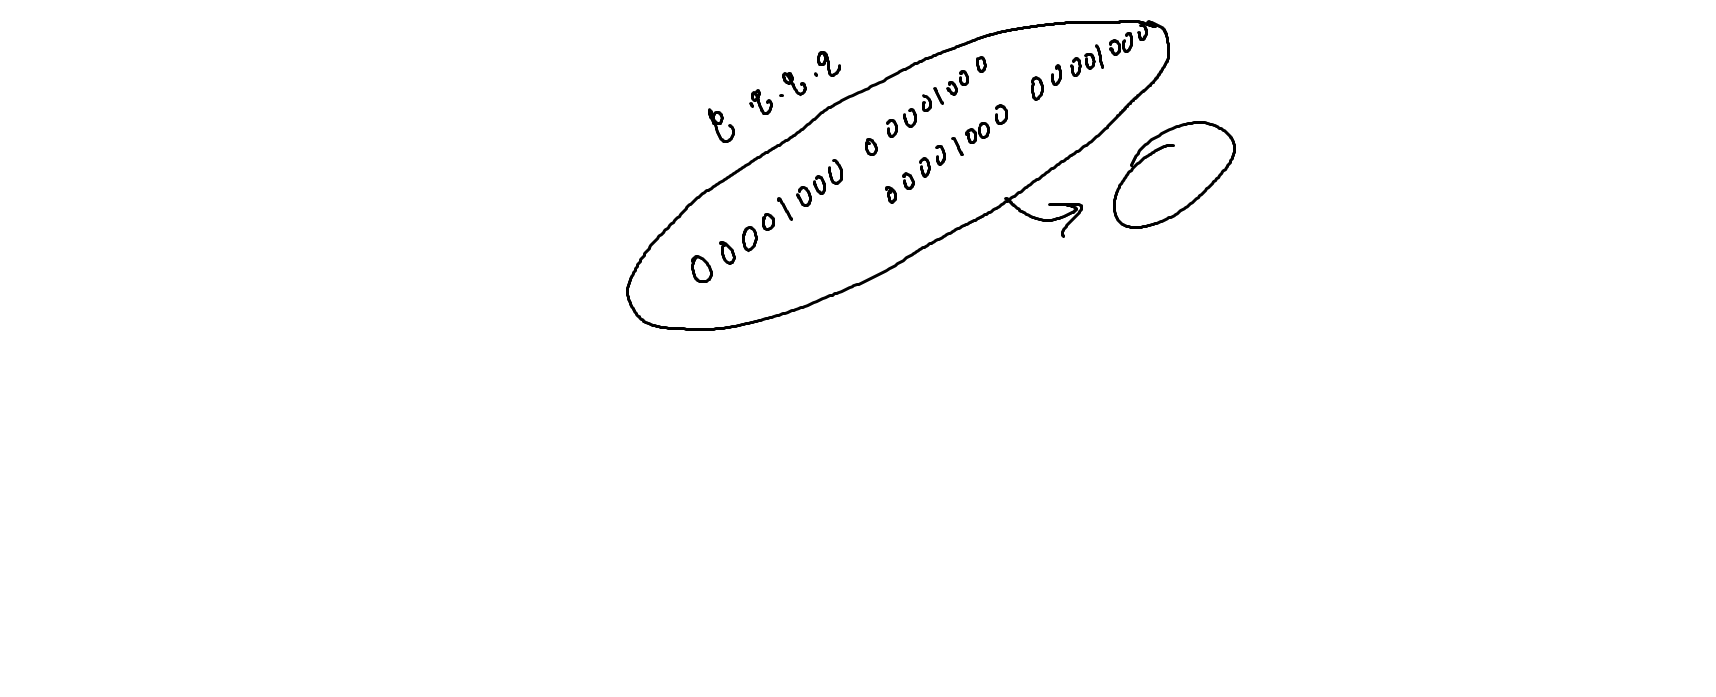 8.8.8.8
00001000 00001000
00001000 00001000